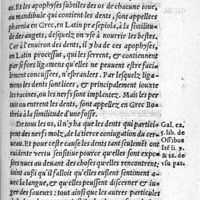 Et les apophyses subtiles des os de chacune ioue,
ou mandibule qui contient les dents, sont appellées
phatnia en Grec, en Latin præsepiola, à la similitu-
de des augets, desquelz on vse à nourrir les bestes.
Car à l'enuiron des dents, il y ha de ces apophyses,
en Latin processus, qui les serrent, et contiennent
par si fortes ligatures qu'elles ne peuuent estre facile
lement concussees, n'esbranlees. Par lesquelz liga-
mens les dents sont contenues, et principalement ioute
les racines, où les nerfs sont implantez. Mais les per
tuis ou entrent les dents, sont appellez en Grec Bo
à la similitude d'une fosse.
De tous les os, il n'y ha que les dents qui partici-
pent des nerfs molz, de la tierce coniugation du cer-
ueau. Et pour ceste cause les dents tant seulement ont
euidente vertu sensitiue pource quelles sont expo-
sees au deuant des choses qui les rencontrent, &
uoint aussi qu'il falloit qu'elles eussent sentiment a-
uec la langue, & qu'elles peussent discerner & iu-
ger des saueurs : tout ainsi que les autres particules
Gal. ca.
5. lib. de
Ossibus
Id li. 5.
& 16. de
vsu part.